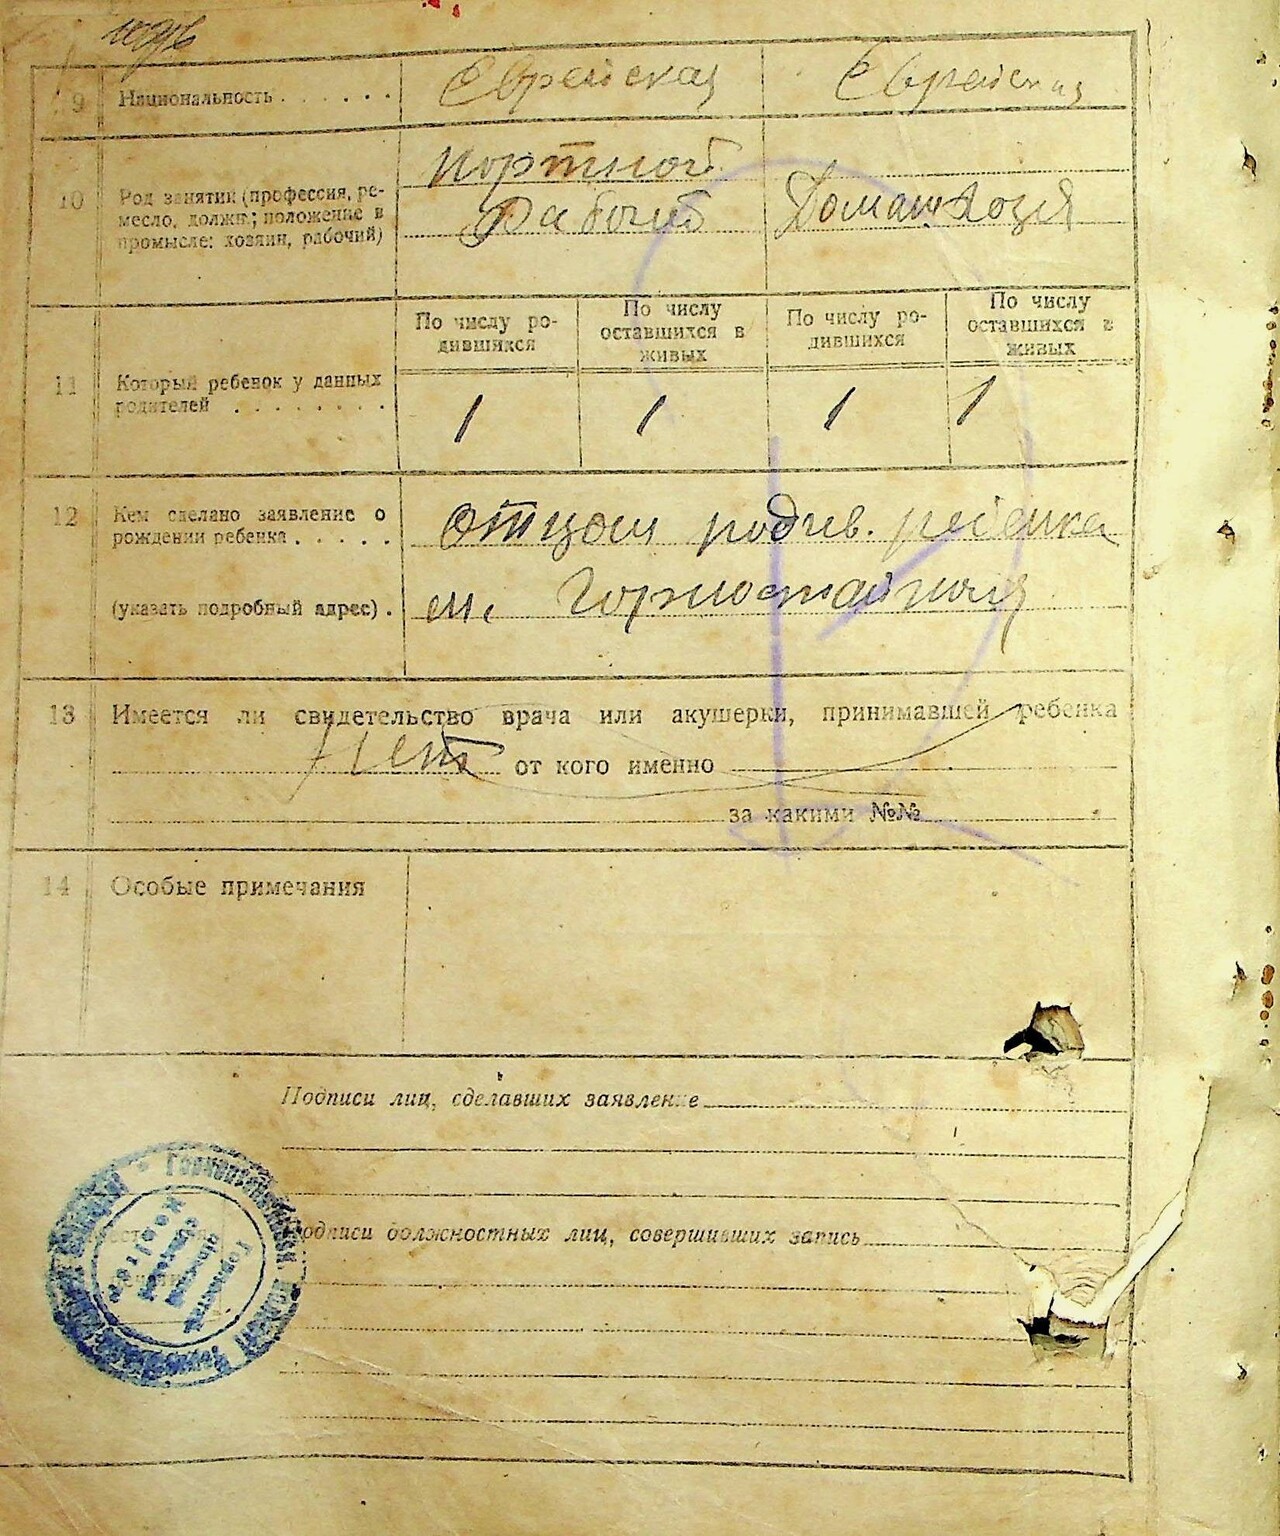 9 Национальность Еврейская Еврейская
Портной
10 Род занятий (профессия, ре-
месло, должн; положение в
промысле: хозяин, рабочий)
Рабочий Домашхозя
По числу ро-
дившихся
По числу
оставшихся в
живых
По числу ро-
дившихся
По числу
оставшихся в
живых
11 Который ребенок у данных
родителей
1 1 1 1
12 Кем сделано заявление о
рождении ребенка
отцом родив. ребенка
(указать подробный адрес) . м. Горностайполь
13 Имеется ли свидетельство врача или акушерки, принимавшей ребенка
Нет от кого именно
за какими №№
14 Особые примечания
Подписи лиц, сделавших заявление
Подписи должностных лиц, совершивших запись